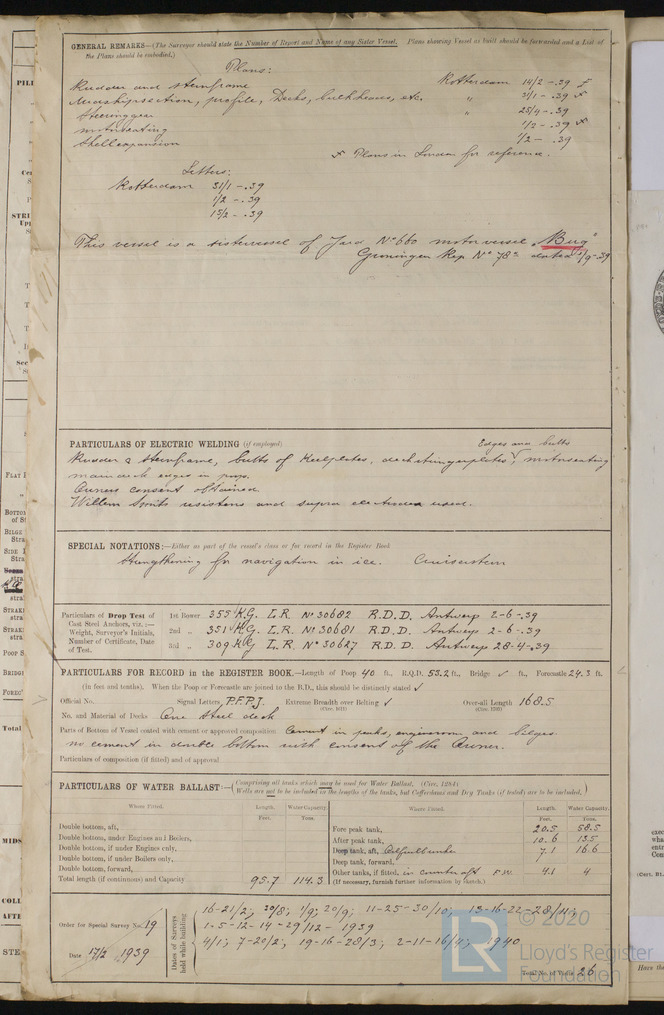 GENERAL REMARKS—(The Surveyor should state the Number of Report and Name of any Sister Vessel. Plans showing Vessel as built should be forwarded and a List of
the Plans should be embodied.)
Plans:
Rudder and sternframe Rotterdam 14/2 -.39
Midshipsection, profile, Decks, bulkheads, etc. " 31/1 -.39
Steeringgear " 25/4 -.39
motorseating 1/2 -.39
Shellexpansion 1/2 -.39
Plans in London for reference.
Letters:
Rotterdam 31/1 -.39
1/2 -.39
15/2 -.39
This vessel is a sistervessel of Yard No 660 motorvessel „Burg"
Groningen Rep No dated 1/9-39
PARTICULARS OF ELECTRIC WELDING (if employed)
Edges and butts
Rudder & Sternframe, butts of Keelplates, deckstringerplates, motorseating
maindeck edges in
Owners consent obtained.
Willem Smits resistens and supra electrodes used.
SPECIAL NOTATIONS:—Either as part of the vessel's class or for record in the Register Book
Strengthening for navigation in ice. Cruiserstern
Particulars of Drop Test of
Cast Steel Anchors, viz.:—
Weight, Surveyor's Initials,
Number of Certificate, Date
of Test.
1st Bower 355 KG. L.R. No 30682 R.D.D. Antwerp 2-6-.39
2nd „ 351 KG. L.R. No 30681 R.D.D. Antwerp 2-6-.39
3rd „ 309 KG L.R. No 30627 R.D.D. Antwerp 28-4-.39
PARTICULARS FOR RECORD in the REGISTER BOOK.—Length of Poop 40 ft., R.Q.D. 53.2 ft., Bridge ft., Forecastle 24.3 ft.
(in feet and tenths). When the Poop or Forecastle are joined to the B.D., this should be distinctly stated
Official No. Signal Letters P.F.P.J. Extreme Breadth over Belting Over-all Length 168.5
No. and Material of Decks One Steel deck
Parts of Bottom of Vessel coated with cement or approved composition Cement in peaks, engineroom and bilges.
no cement in double bottom with consent of the Owner.
Particulars of composition (if fitted) and of approval
PARTICULARS OF WATER BALLAST:—(Comprising all tanks which may be used for Water Ballast. (Circ. 1284)
Wells are not to be included in the lengths of the tanks, but Cofferdams and Dry Tanks (if tested) are to be included.)
Where Fitted. Length. Water Capacity. Where Fitted. Length. Water Capacity.
Feet. Tons. Feet. Tons.
Double bottom, aft, Fore peak tank, 20.5 58.5
Double bottom, under Engines and Boilers, After peak tank, 10.6 13.5
Double bottom, if under Engines only, Deep tank, aft, Oilfuelbunker 7.1 16.6
Double bottom, if under Boilers only, Deep tank, forward,
Double bottom, forward, Other tanks, if fitted, in counter aft F.W. 4.1 4
Total length (if continuous) and Capacity 95.7 114.3 (If necessary, furnish further information by sketch.)
Order for Special Survey No. 19
Date 17/2 1939
Dates of Surveys
held while building
16-21/2; 30/8; 1/9; 20/9; 11-25-30/10; 13-16-22-28/11;
1-5-12-14-29/12-1939
4/1; 7-20/2; 19-16-28/3; 2-11-16/4; 1940
Total No. of Visits 26
© 2020
LR
Lloyd's Register
Foundation